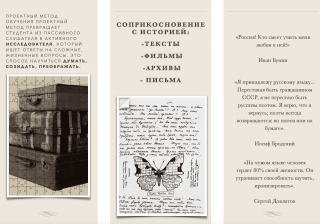 ПРОЕКТНЫЙ МЕТОД
ОБУЧЕНИЯ ПРОЕКТНЫЙ
МЕТОД ПРЕВРАЩАЕТ
СТУДЕНТА ИЗ ПАССИВНОГО
СЛУШАТЕЛЯ В АКТИВНОГО
ИССЛЕДОВАТЕЛЯ, КОТОРЫЙ
ИЩЕТ ОТВЕТЫ НА СЛОЖНЫЕ,
ЖИЗНЕННЫЕ ВОПРОСЫ. ЭТО
СПОСОБ НАУЧИТЬСЯ ДУМАТЬ,
СОЗДАТЬ, ПРЕОБРАЖАТЬ.
СОПРИКОСНОВЕНИЕ
С ИСТОРИЕЙ:
-ТЕКСТЫ
-ФИЛЬМЫ
-АРХИВЫ
- ПИСЬМА
«Россия! Кто смеет учить меня
любви к ней?»
Иван Бунин
«Я принадлежу русскому языку...
Переставая быть гражданином
СССР, я не перестаю быть
русским поэтом. Я верю, что я
вернусь; поэты всегда
возвращаются во плоти или на
бумаге».
Иосиф Бродский
«На чужом языке человек
теряет 80% своей личности. Он
утрачивает способность шутить,
иронизировать».
Сергей Довлатов